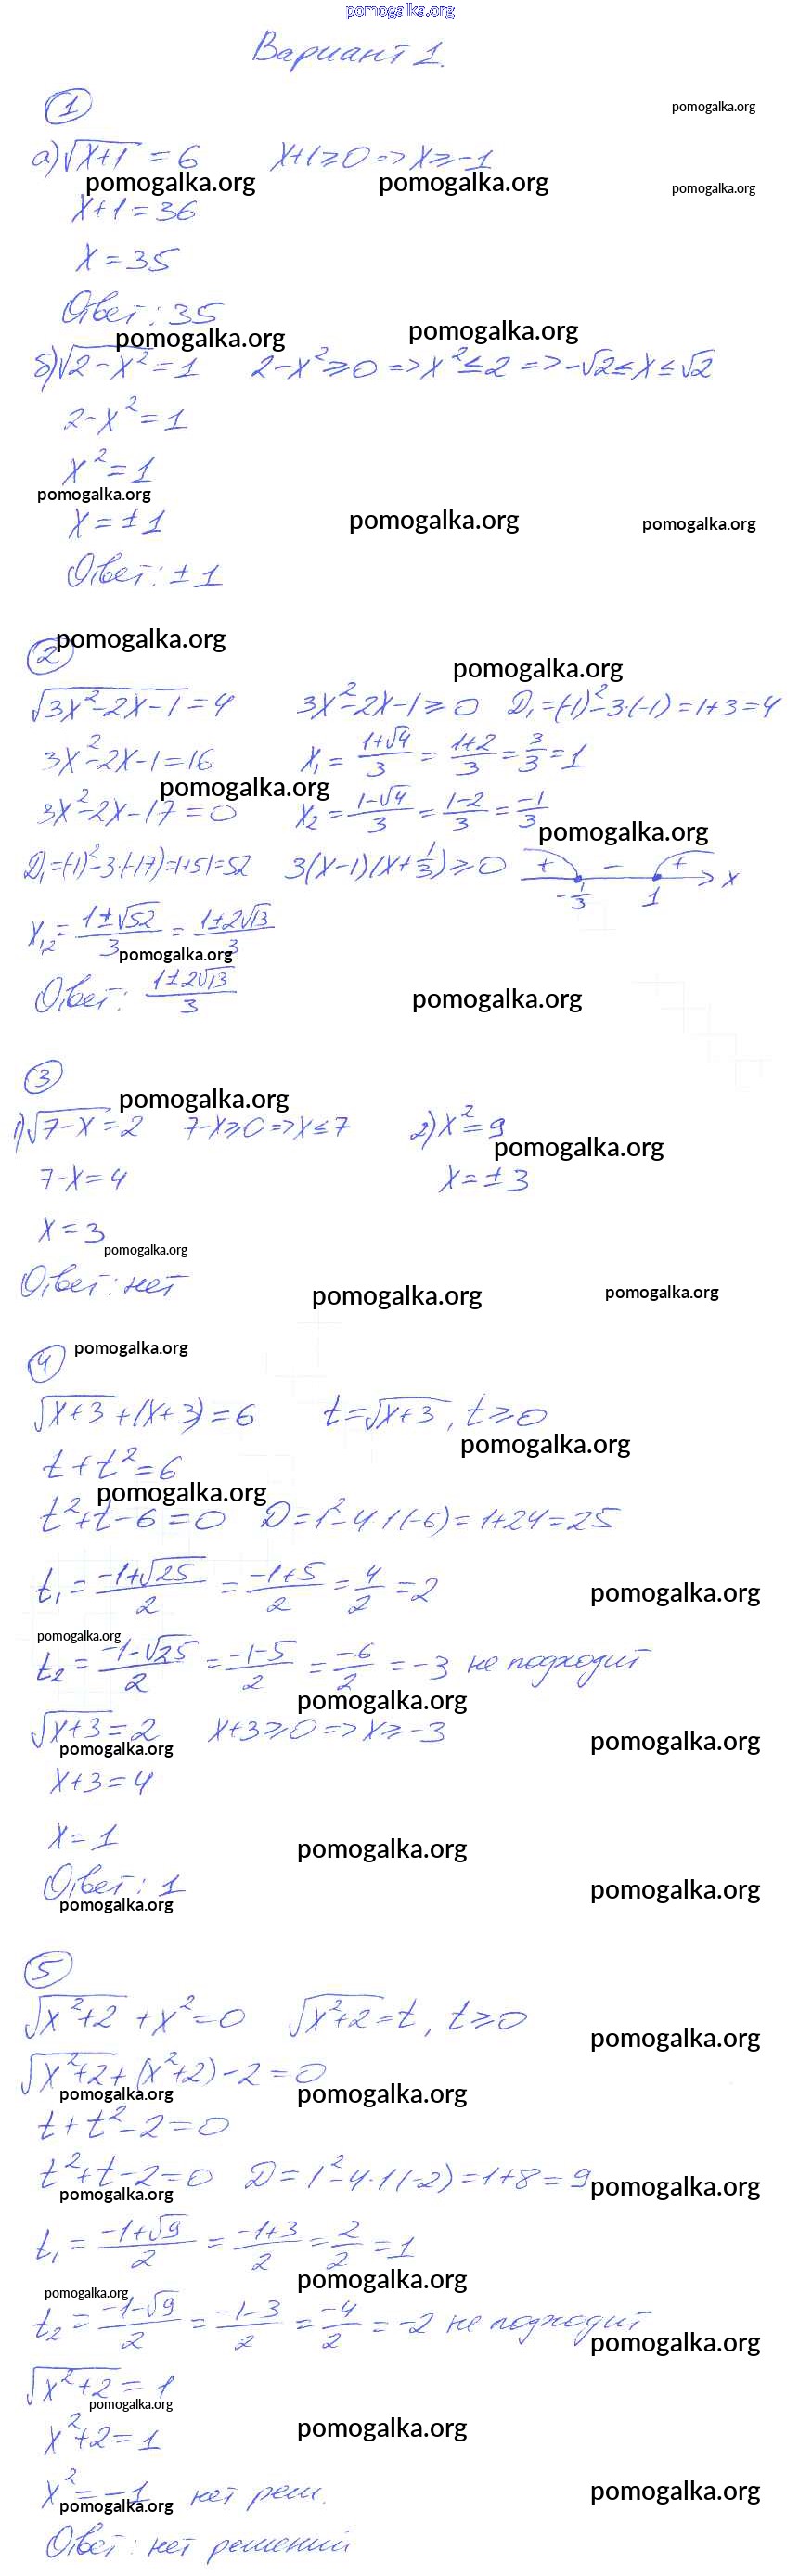 pomogalka.org
Вариант 1.
1
pomogalka.org
а) √(x+1) = 6 x+1≥0 => x≥-1
pomogalka.org pomogalka.org pomogalka.org
x+1=36
x=35
Ответ: 35
pomogalka.org pomogalka.org
б) √(2-x²) = 1 2-x²≥0 => x²≤2 => -√2≤x≤√2
2-x²=1
x²=1
pomogalka.org
x=±1 pomogalka.org pomogalka.org
Ответ: ±1
2 pomogalka.org
pomogalka.org
√(3x²-2x-1) = 4 3x²-2x-1≥0 D₁=(-1)²-3·(-1)=1+3=4
3x²-2x-1=16 x₁=(1+√4)/3=(1+2)/3=3/3=1
pomogalka.org
3x²-2x-17=0 x₂=(1-√4)/3=(1-2)/3=-1/3
pomogalka.org
D₁=(-1)²-3·(-17)=1+51=52 3(x-1)(x+1/3)≥0 + - + x
-1/3 1
x₁,₂=(1±√52)/3=(1±2√13)/3
pomogalka.org
Ответ: (1±2√13)/3 pomogalka.org
3
pomogalka.org
1) √(7-x) = 2 7-x≥0 => x≤7 2) x²=9
pomogalka.org
7-x=4 x=±3
x=3
pomogalka.org
Ответ: нет pomogalka.org pomogalka.org
4 pomogalka.org
√(x+3)+(x+3)=6 t=√(x+3), t≥0
pomogalka.org
t+t²=6
pomogalka.org
t²+t-6=0 D=1²-4·1·(-6)=1+24=25
t₁=(-1+√25)/2=(-1+5)/2=4/2=2 pomogalka.org
pomogalka.org
t₂=(-1-√25)/2=(-1-5)/2=-6/2=-3 не подходит
pomogalka.org
√(x+3)=2 x+3≥0 => x≥-3 pomogalka.org
pomogalka.org
x+3=4
x=1 pomogalka.org
Ответ: 1 pomogalka.org
pomogalka.org
5
√(x²+2)+x²=0 √(x²+2)=t, t≥0
pomogalka.org
√(x²+2)+(x²+2)-2=0
pomogalka.org pomogalka.org
t+t²-2=0
t²+t-2=0 D=1²-4·1(-2)=1+8=9 pomogalka.org
pomogalka.org
t₁=(-1+√9)/2=(-1+3)/2=2/2=1
pomogalka.org
pomogalka.org
t₂=(-1-√9)/2=(-1-3)/2=-4/2=-2 не подходит
pomogalka.org
√(x²+2)=1
pomogalka.org
x²+2=1 pomogalka.org
x²=-1 нет реш. pomogalka.org
pomogalka.org
Ответ: нет решений